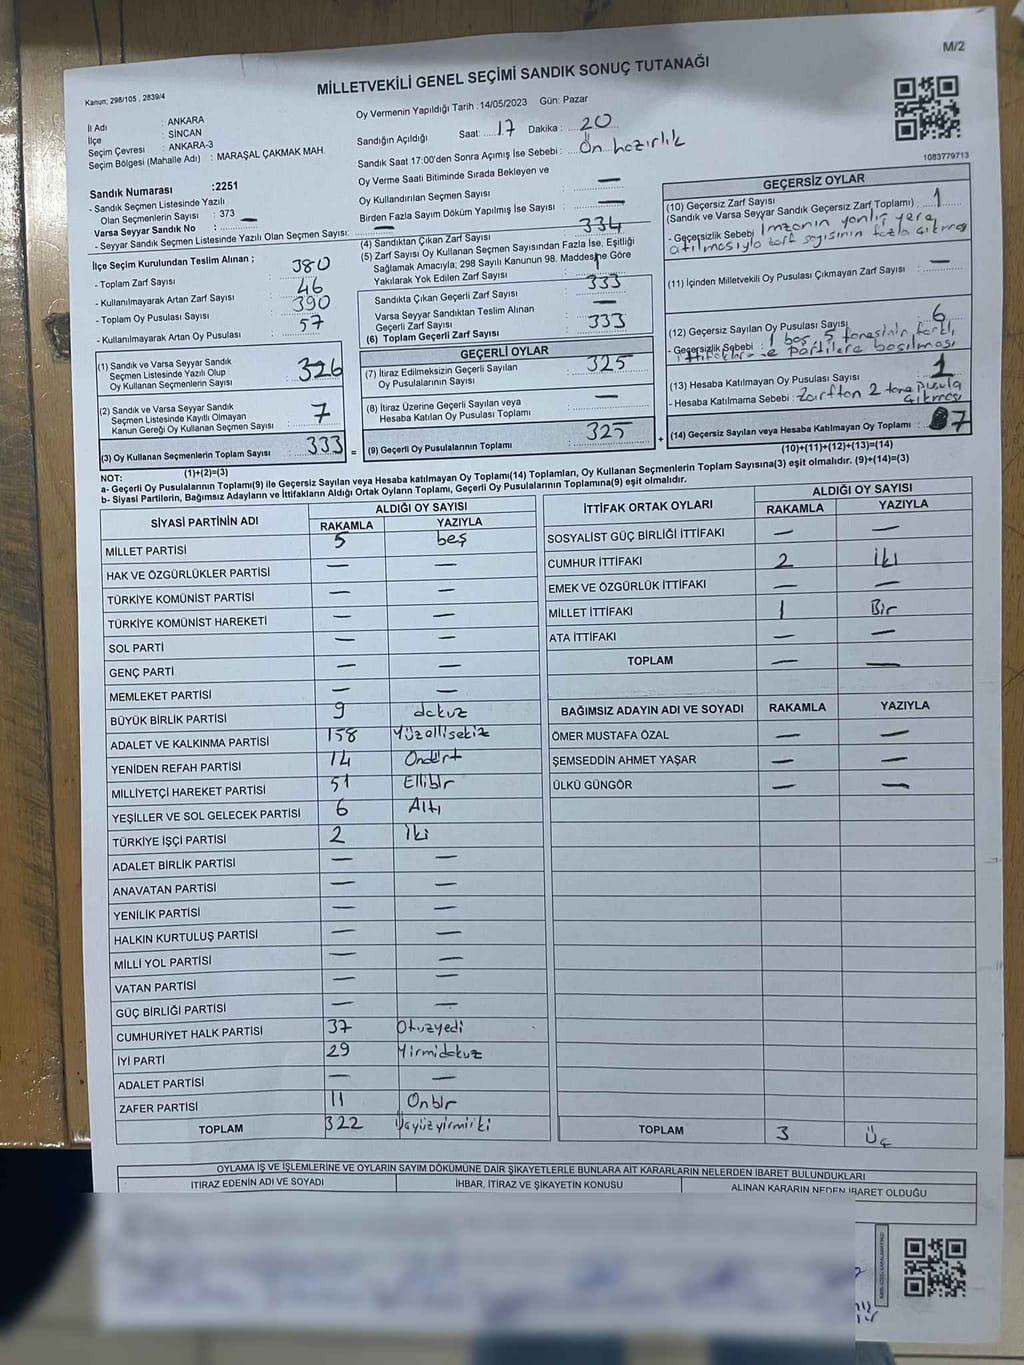 M/2
Kanun: 298/105 , 2839/4
MİLLETVEKİLİ GENEL SEÇİMİ SANDIK SONUÇ TUTANAĞI
İl Adı : ANKARA
İlçe : SİNCAN
Seçim Çevresi : ANKARA-3
Seçim Bölgesi (Mahalle Adı) : MARAŞAL ÇAKMAK MAH.
Oy Vermenin Yapıldığı Tarih :14/05/2023 Gün: Pazar
Sandığın Açıldığı Saat: 17 Dakika : 20
Sandık Saat 17:00'den Sonra Açımış İse Sebebi : Ön hazırlık
Oy Verme Saati Bitiminde Sırada Bekleyen ve
Oy Kullandırılan Seçmen Sayısı : —
Birden Fazla Sayım Döküm Yapılmış İse Sayısı : —
1083779713
Sandık Numarası :2251
- Sandık Seçmen Listesinde Yazılı
Olan Seçmenlerin Sayısı : 373
Varsa Seyyar Sandık No : —
- Seyyar Sandık Seçmen Listesinde Yazılı Olan Seçmen Sayısı: —
İlçe Seçim Kurulundan Teslim Alınan ;
- Toplam Zarf Sayısı : 380
- Kullanılmayarak Artan Zarf Sayısı : 46
- Toplam Oy Pusulası Sayısı : 390
- Kullanılmayarak Artan Oy Pusulası : 57
(1) Sandık ve Varsa Seyyar Sandık
Seçmen Listesinde Yazılı Olup
Oy Kullanan Seçmenlerin Sayısı : 326
(2) Sandık ve Varsa Seyyar Sandık
Seçmen Listesinde Kayıtlı Olmayan
Kanun Gereği Oy Kullanan Seçmen Sayısı : 7
(3) Oy Kullanan Seçmenlerin Toplam Sayısı : 333 =
(1)+(2)=(3)
(4) Sandıktan Çıkan Zarf Sayısı : 334
(5) Zarf Sayısı Oy Kullanan Seçmen Sayısından Fazla İse, Eşitliği
Sağlamak Amacıyla; 298 Sayılı Kanunun 98. Maddesine Göre
Yakılarak Yok Edilen Zarf Sayısı : 1
Sandıkta Çıkan Geçerli Zarf Sayısı : 333
Varsa Seyyar Sandıktan Teslim Alınan
Geçerli Zarf Sayısı : —
(6) Toplam Geçerli Zarf Sayısı : 333
GEÇERLİ OYLAR
(7) İtiraz Edilmeksizin Geçerli Sayılan
Oy Pusulalarının Sayısı : 325
(8) İtiraz Üzerine Geçerli Sayılan veya
Hesaba Katılan Oy Pusulası Toplamı : —
(9) Geçerli Oy Pusulalarının Toplamı : 325 +
GEÇERSİZ OYLAR
(10) Geçersiz Zarf Sayısı
(Sandık ve Varsa Seyyar Sandık Geçersiz Zarf Toplamı) : 1
- Geçersizlik Sebebi : İmzanın yanlış yere
atılmasıyla zarf sayısının fazla çıkması
(11) İçinden Milletvekili Oy Pusulası Çıkmayan Zarf Sayısı : —
(12) Geçersiz Sayılan Oy Pusulası Sayısı : 6
- Geçersizlik Sebebi : 1 boş 5 tanesinin farklı,
ittifaklara ve partilere basılması
(13) Hesaba Katılmayan Oy Pusulası Sayısı : 1
- Hesaba Katılmama Sebebi : Zarftan 2 tane pusula
çıkması
(14) Geçersiz Sayılan veya Hesaba Katılmayan Oy Toplamı : 7
(10)+(11)+(12)+(13)=(14)
NOT:
a- Geçerli Oy Pusulalarının Toplamı(9) ile Geçersiz Sayılan veya Hesaba katılmayan Oy Toplamı(14) Toplamları, Oy Kullanan Seçmenlerin Toplam Sayısına(3) eşit olmalıdır. (9)+(14)=(3)
b- Siyasi Partilerin, Bağımsız Adayların ve İttifakların Aldığı Ortak Oyların Toplamı, Geçerli Oy Pusulalarının Toplamına(9) eşit olmalıdır.
SİYASİ PARTİNİN ADI ALDIĞI OY SAYISI
RAKAMLA YAZIYLA
MİLLET PARTİSİ 5 beş
HAK VE ÖZGÜRLÜKLER PARTİSİ — —
TÜRKİYE KOMÜNİST PARTİSİ — —
TÜRKİYE KOMÜNİST HAREKETİ — —
SOL PARTİ — —
GENÇ PARTİ — —
MEMLEKET PARTİSİ — —
BÜYÜK BİRLİK PARTİSİ 9 dokuz
ADALET VE KALKINMA PARTİSİ 158 Yüzellisekiz
YENİDEN REFAH PARTİSİ 14 Ondört
MİLLİYETÇİ HAREKET PARTİSİ 51 Ellibir
YEŞİLLER VE SOL GELECEK PARTİSİ 6 Altı
TÜRKİYE İŞÇİ PARTİSİ 2 İki
ADALET BİRLİK PARTİSİ — —
ANAVATAN PARTİSİ — —
YENİLİK PARTİSİ — —
HALKIN KURTULUŞ PARTİSİ — —
MİLLİ YOL PARTİSİ — —
VATAN PARTİSİ — —
GÜÇ BİRLİĞİ PARTİSİ — —
CUMHURİYET HALK PARTİSİ 37 Otuzyedi
İYİ PARTİ 29 Yirmidokuz
ADALET PARTİSİ — —
ZAFER PARTİSİ 11 Onbir
TOPLAM 322 Üçyüzyirmiiki
İTTİFAK ORTAK OYLARI ALDIĞI OY SAYISI
RAKAMLA YAZIYLA
SOSYALİST GÜÇ BİRLİĞİ İTTİFAKI — —
CUMHUR İTTİFAKI 2 İki
EMEK VE ÖZGÜRLÜK İTTİFAKI — —
MİLLET İTTİFAKI 1 Bir
ATA İTTİFAKI — —
TOPLAM — —
BAĞIMSIZ ADAYIN ADI VE SOYADI RAKAMLA YAZIYLA
ÖMER MUSTAFA ÖZAL — —
ŞEMSEDDİN AHMET YAŞAR — —
ÜLKÜ GÜNGÖR — —
TOPLAM 3 Üç
OYLAMA İŞ VE İŞLEMLERİNE VE OYLARIN SAYIM DÖKÜMÜNE DAİR ŞİKAYETLERLE BUNLARA AİT KARARLARIN NELERDEN İBARET BULUNDUKLARI
İTİRAZ EDENİN ADI VE SOYADI İHBAR, İTİRAZ VE ŞİKAYETİN KONUSU ALINAN KARARIN NEDEN İBARET OLDUĞU